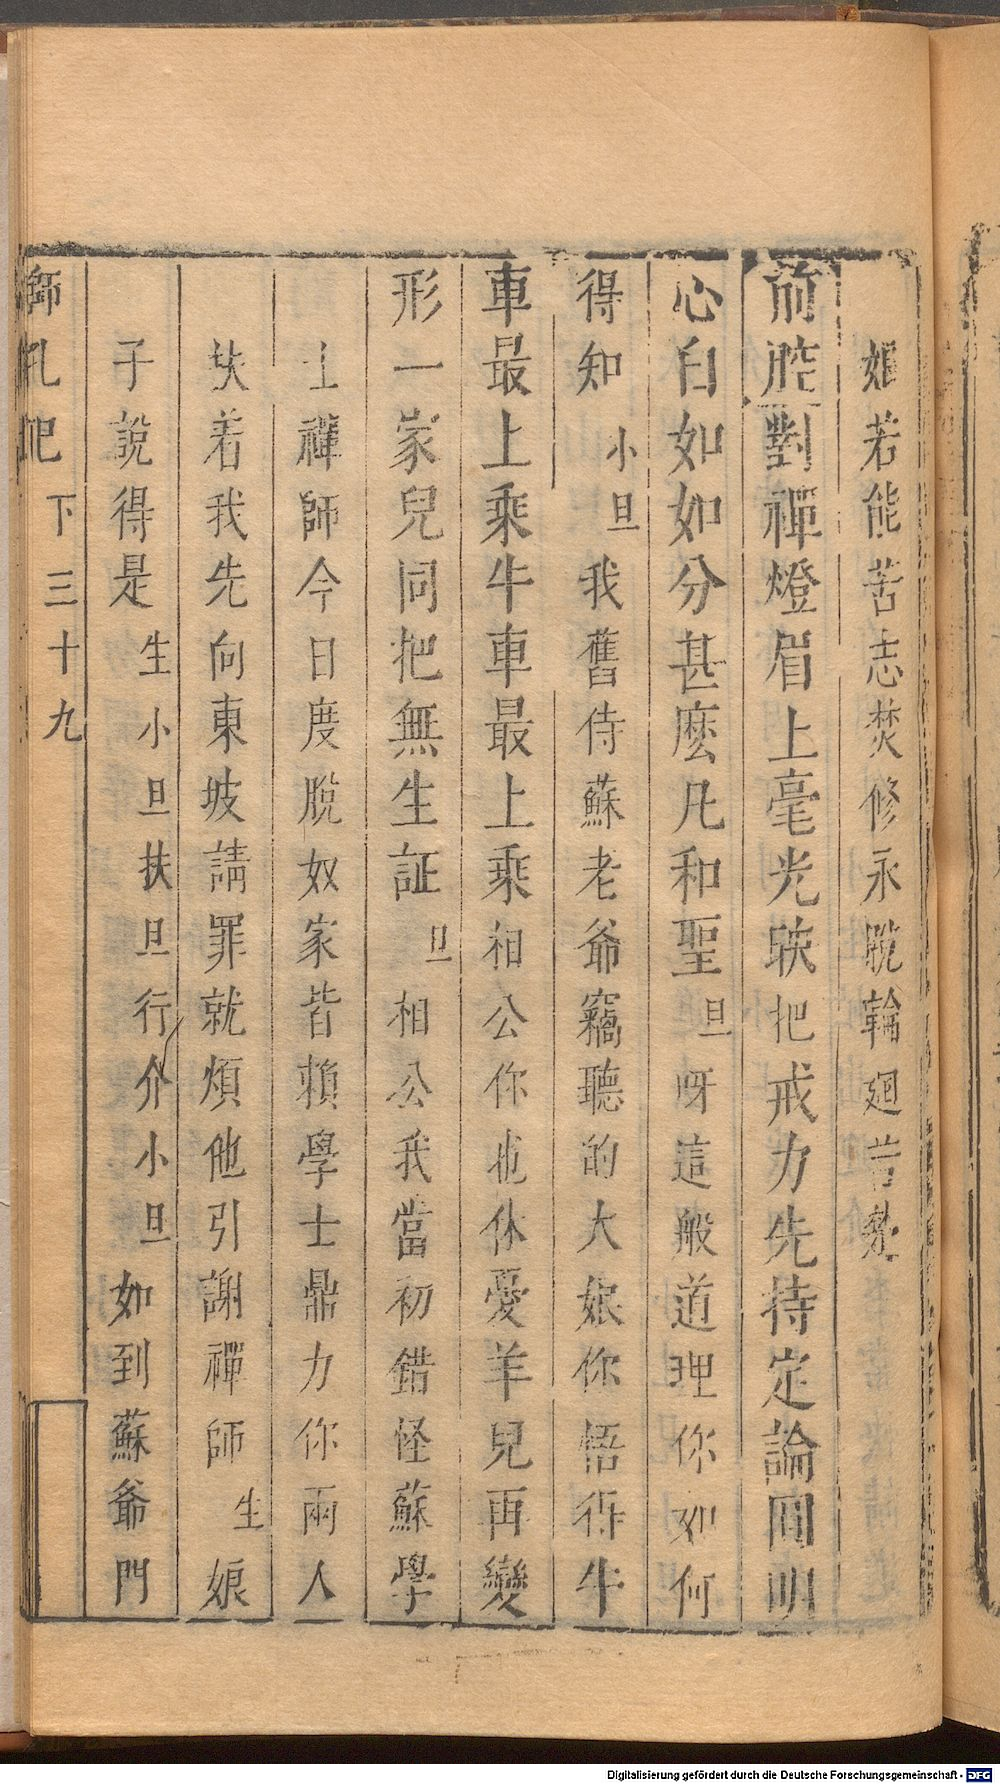 娘若能苦志焚修永脫輪廻苦惱
前腔對禪燈眉上毫光映把戒力先持定論圓明
心自如如分甚麽凡和聖旦呀這般道理你如何
得知小旦我舊侍蘇老爺竊聽的大娘你悟得牛
車最上乘牛車最上乘相公你也休憂羊兒再變
形一家兒同把無生証旦相公我當初錯怪蘇學
士禪師今日度脫奴家皆賴學士鼎力你兩人
扶着我先向東坡請罪就煩他引謝禪師生娘
子說得是生小旦扶旦行介小旦如到蘇爺門
獅吼記 下 三十九
Digitalisierung gefördert durch die Deutsche Forschungsgemeinschaft - DFG